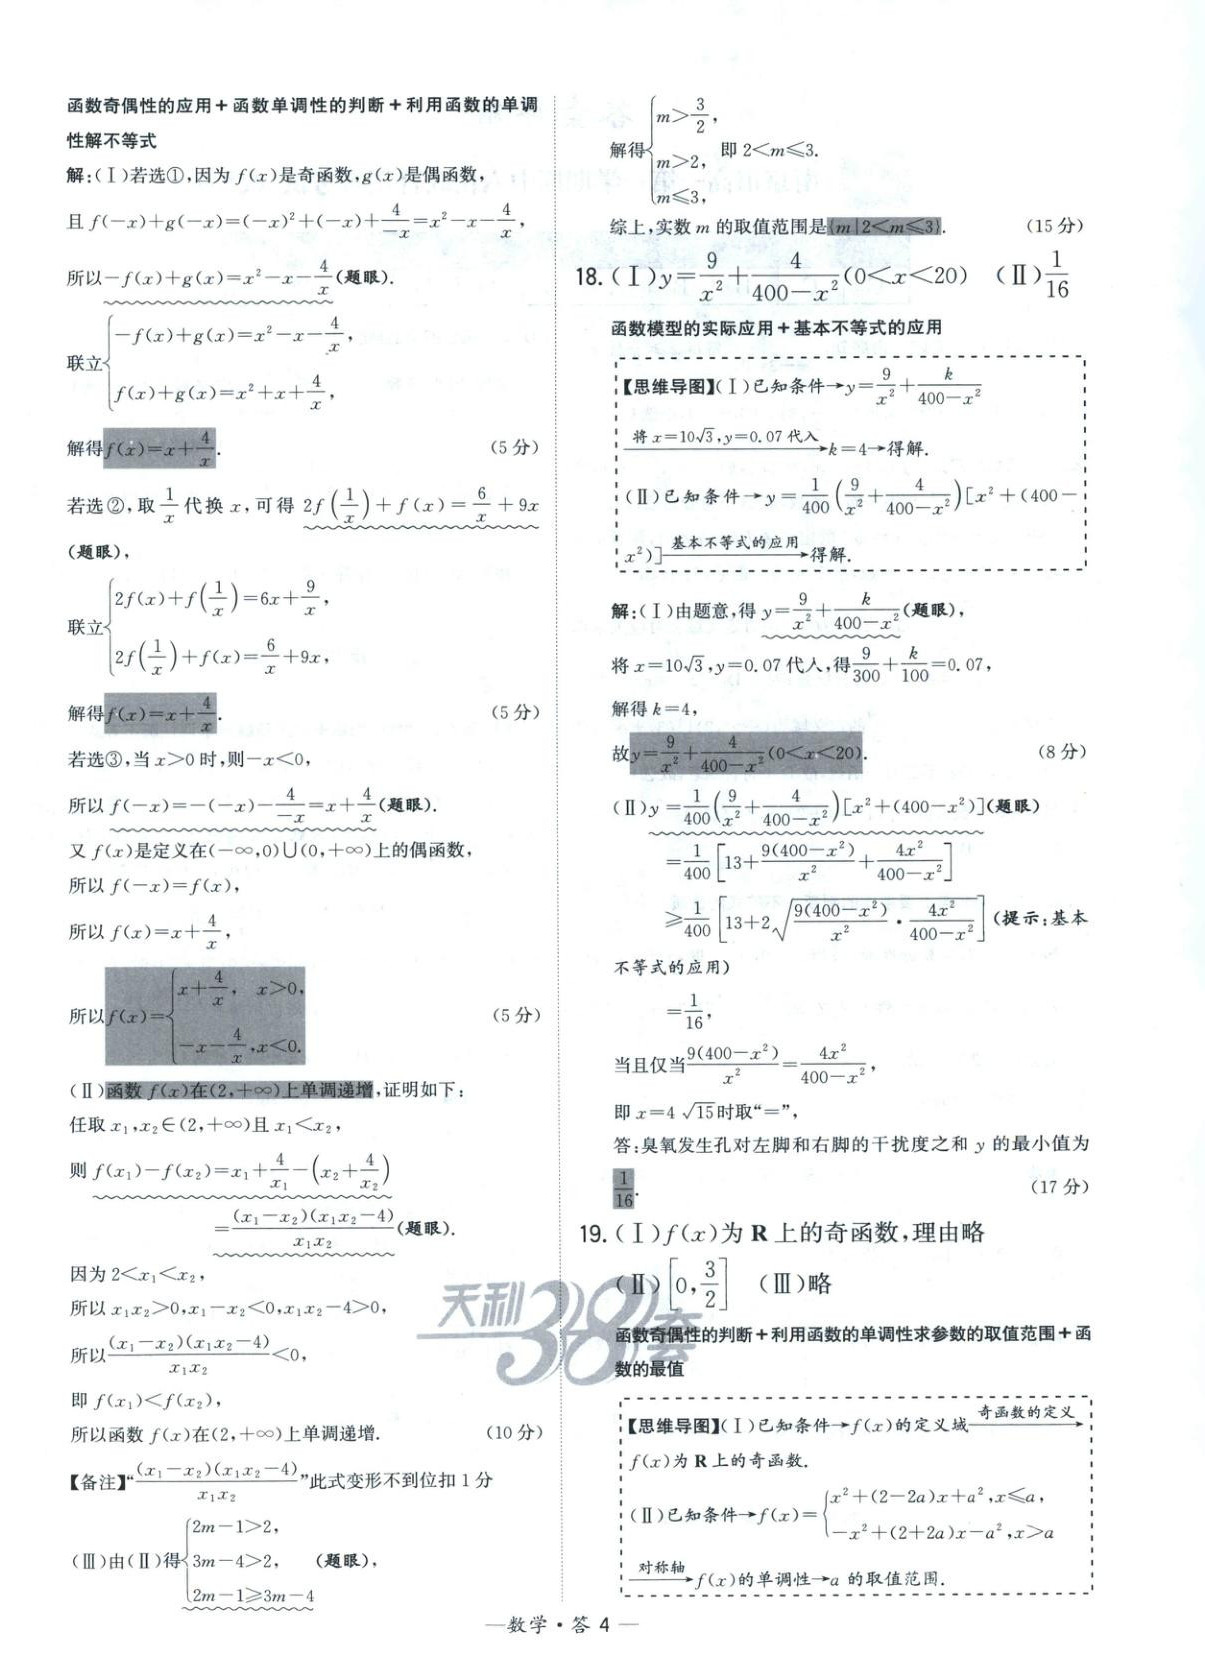 函数奇偶性的应用+函数单调性的判断+利用函数的单调
性解不等式
解:(Ⅰ)若选①,因为 f(x)是奇函数,g(x)是偶函数,
且 f(-x)+g(-x)=(-x)²+(-x)+4/(-x)=x²-x-4/x,
所以-f(x)+g(x)=x²-x-4/x(题眼).
联立{-f(x)+g(x)=x²-x-4/x,
f(x)+g(x)=x²+x+4/x,
解得f(x)=x+4/x. (5分)
若选②,取1/x代换 x,可得 2f(1/x)+f(x)=6/x+9x
(题眼),
联立{2f(x)+f(1/x)=6x+9/x,
2f(1/x)+f(x)=6/x+9x,
解得f(x)=x+4/x. (5分)
若选③,当 x>0 时,则-x<0,
所以 f(-x)=-(-x)-4/(-x)=x+4/x(题眼).
又 f(x)是定义在(-∞,0)∪(0,+∞)上的偶函数,
所以 f(-x)=f(x),
所以 f(x)=x+4/x,
所以f(x)={x+4/x, x>0,
-x-4/x,x<0. (5分)
(Ⅱ)函数 f(x)在(2,+∞)上单调递增,证明如下:
任取 x₁,x₂∈(2,+∞)且 x₁<x₂,
则 f(x₁)-f(x₂)=x₁+4/x₁-(x₂+4/x₂)
=(x₁-x₂)(x₁x₂-4)/x₁x₂(题眼).
因为 2<x₁<x₂,
所以 x₁x₂>0,x₁-x₂<0,x₁x₂-4>0,
所以(x₁-x₂)(x₁x₂-4)/x₁x₂<0,
即 f(x₁)<f(x₂),
所以函数 f(x)在(2,+∞)上单调递增. (10分)
【备注】“(x₁-x₂)(x₁x₂-4)/x₁x₂”此式变形不到位扣 1 分
(Ⅲ)由(Ⅱ)得{2m-1>2,
3m-4>2, (题眼),
2m-1≥3m-4
解得{m>3/2,
m>2, 即 2<m≤3.
m≤3,
综上,实数 m 的取值范围是{m|2<m≤3}. (15分)
18.(Ⅰ)y=9/x²+4/(400-x²)(0<x<20) (Ⅱ)1/16
函数模型的实际应用+基本不等式的应用
【思维导图】(Ⅰ)已知条件→y=9/x²+k/(400-x²)
将 x=10√3,y=0.07代入→k=4→得解.
(Ⅱ)已知条件→y=1/400(9/x²+4/(400-x²))[x²+(400-
x²)] 基本不等式的应用→得解.
解:(Ⅰ)由题意,得 y=9/x²+k/(400-x²)(题眼),
将 x=10√3,y=0.07代入,得9/300+k/100=0.07,
解得 k=4,
故y=9/x²+4/(400-x²)(0<x<20). (8分)
(Ⅱ)y=1/400(9/x²+4/(400-x²))[x²+(400-x²)](题眼)
=1/400[13+9(400-x²)/x²+4x²/(400-x²)]
≥1/400[13+2√(9(400-x²)/x²·4x²/(400-x²))](提示:基本
不等式的应用)
=1/16,
当且仅当9(400-x²)/x²=4x²/(400-x²),
即 x=4√15时取“=”,
答:臭氧发生孔对左脚和右脚的干扰度之和 y 的最小值为
1/16. (17分)
19.(Ⅰ)f(x)为 R 上的奇函数,理由略
(Ⅱ)[0,3/2] (Ⅲ)略
函数奇偶性的判断+利用函数的单调性求参数的取值范围+函
数的最值
【思维导图】(Ⅰ)已知条件→f(x)的定义域 奇函数的定义→
f(x)为 R 上的奇函数.
(Ⅱ)已知条件→f(x)={x²+(2-2a)x+a²,x≤a,
-x²+(2+2a)x-a²,x>a
对称轴→f(x)的单调性→a 的取值范围.
天利38套
—数学·答 4—